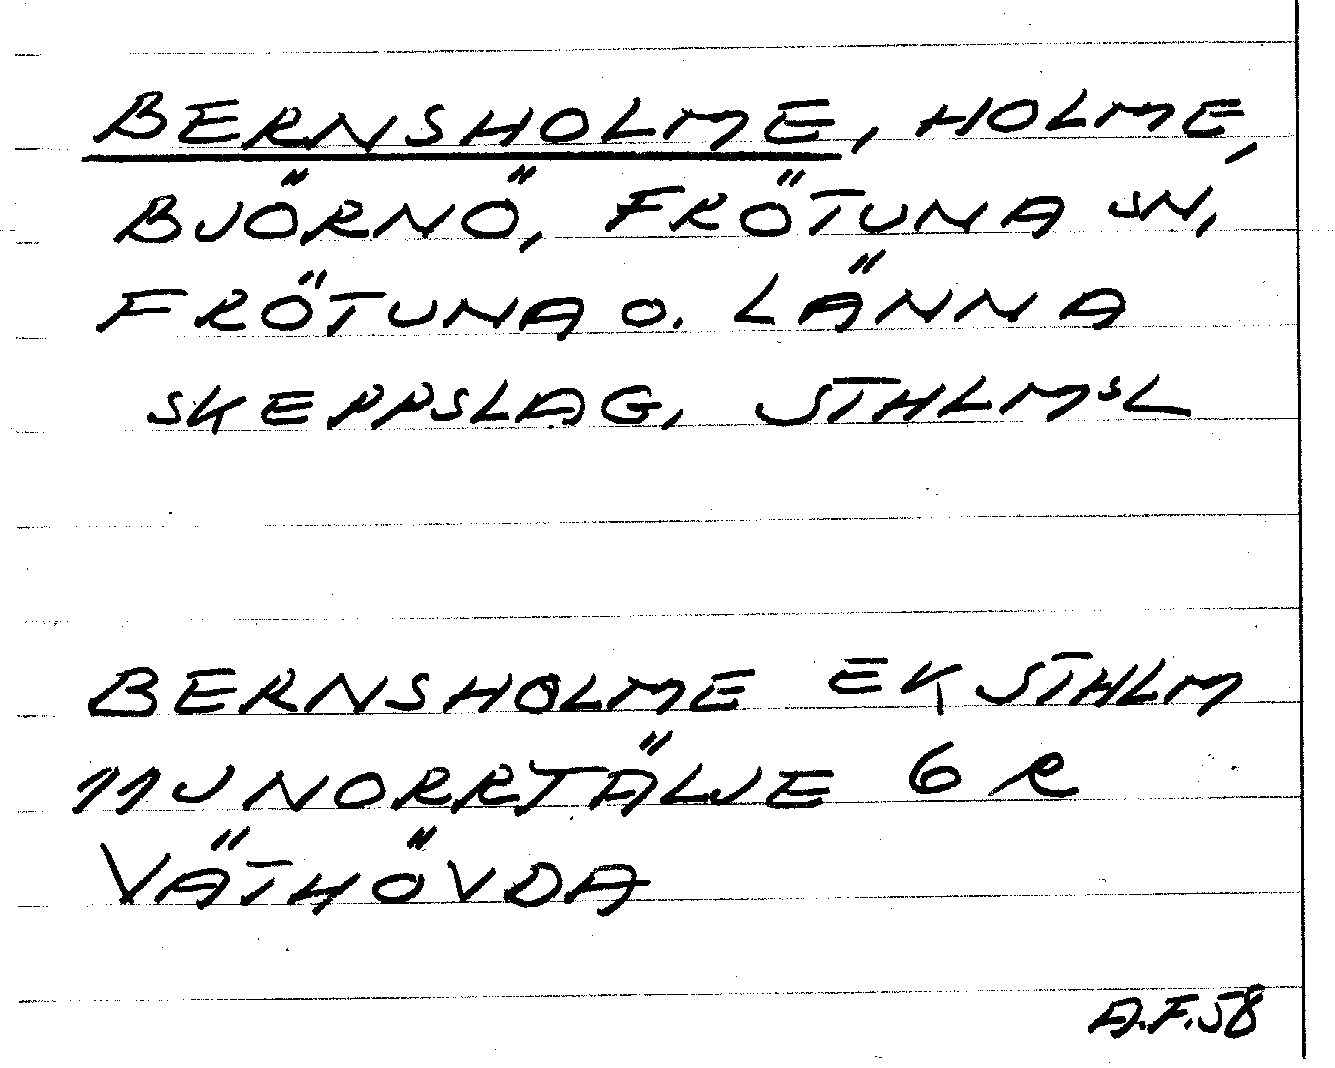 BERNSHOLME, HOLME,
BJÖRNÖ, FRÖTUNA SN,
FRÖTUNA O. LÄNNA
SKEPPSLAG, STHLMSL
BERNSHOLME EK STHLM
11J NORRTÄLJE 6 R
VÄTHÖVDA
A.F.58